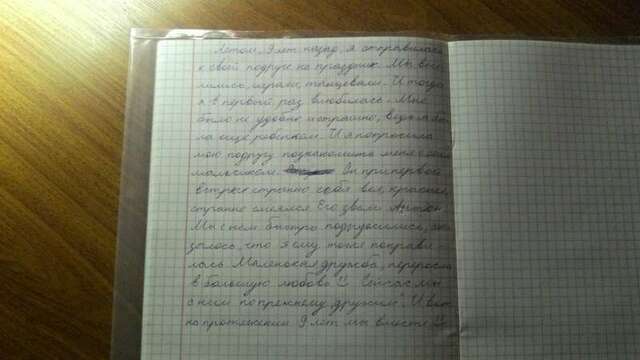 Летом, 9 лет назад, я отправилась
к своей подруге на праздник. Мы весе
лились, играли, танцевали. И тогда
я в первый раз влюбилась. Мне
было не удобно и страшно, ведь я бы
ла ещё ребёнком. И я попросила
мою подругу познакомить меня с этим
мальчиком. Он при первой
встрече странно себя вёл, краснел,
странно смеялся. Его звали Антон.
Мы с ним быстро подружились, ока
залось, что я ему тоже понрави
лась. Маленькая дружба, переросла
в большую любовь. Сейчас мы
с ним по прежнему дружим. И вот
на протяжении 9 лет мы вместе